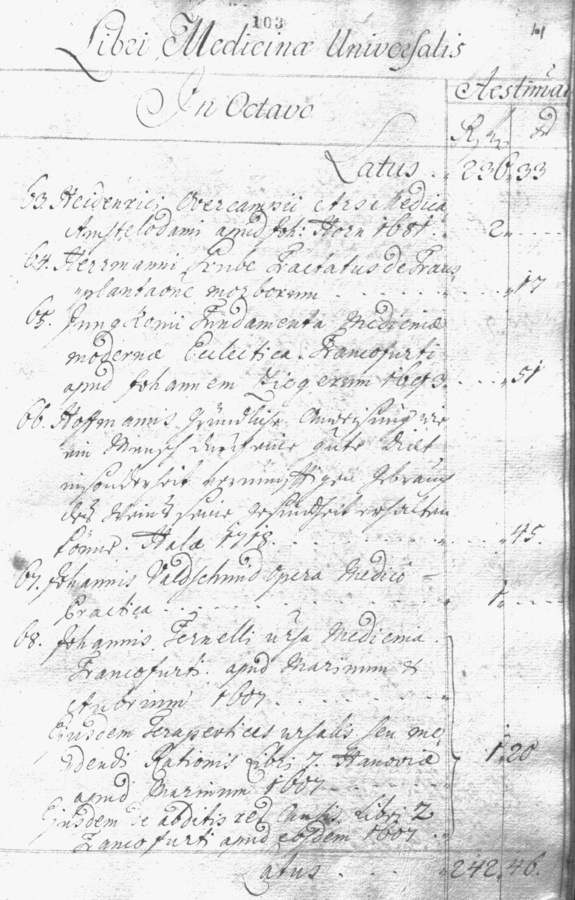 103
Libri Medicinæ Universalis
In Octavo
Aestima
R
Latus . . 236. 33
63. Heidenrici Overcampii Ars Medica
Amstelodami apud Joh: Horn 1681 . . 2 . . . .
64. Herrmanni Grube Tractatus de Trans
plantaone morborum . . . . . 17
65. Jungkenii Fundamenta Medicinæ
modernæ Eclectica. Francofurti
apud Johannem Ziegerum 1693 . . . 51
66. Hoffmannis Gründliche Anweisung wie
ein Mensch durch eine gute Diæt
insonderheit vernünfftigen Gebrauch
des Weins seine Gesundheit erhalten
könne. Halæ 1718 . . . . . 45
67. Johannis Valdschmid Opera Medico-
Practica . . . . . . 1. . . . .
68. Johannis Fernelli Medicina .
Francofurti. apud Marinum &
Aubrium 1607. . . . . .
Ejusdem Terapevtices ursalis seu me
dendi Rationis Libri 7. Hanoviæ 1. 20
apud Marinum 1607 . . . .
Ejusdem de abditis rer Causis. Libri 2
Francofurti apud eosdem 1607 . .
Latus . . . 242. 46.